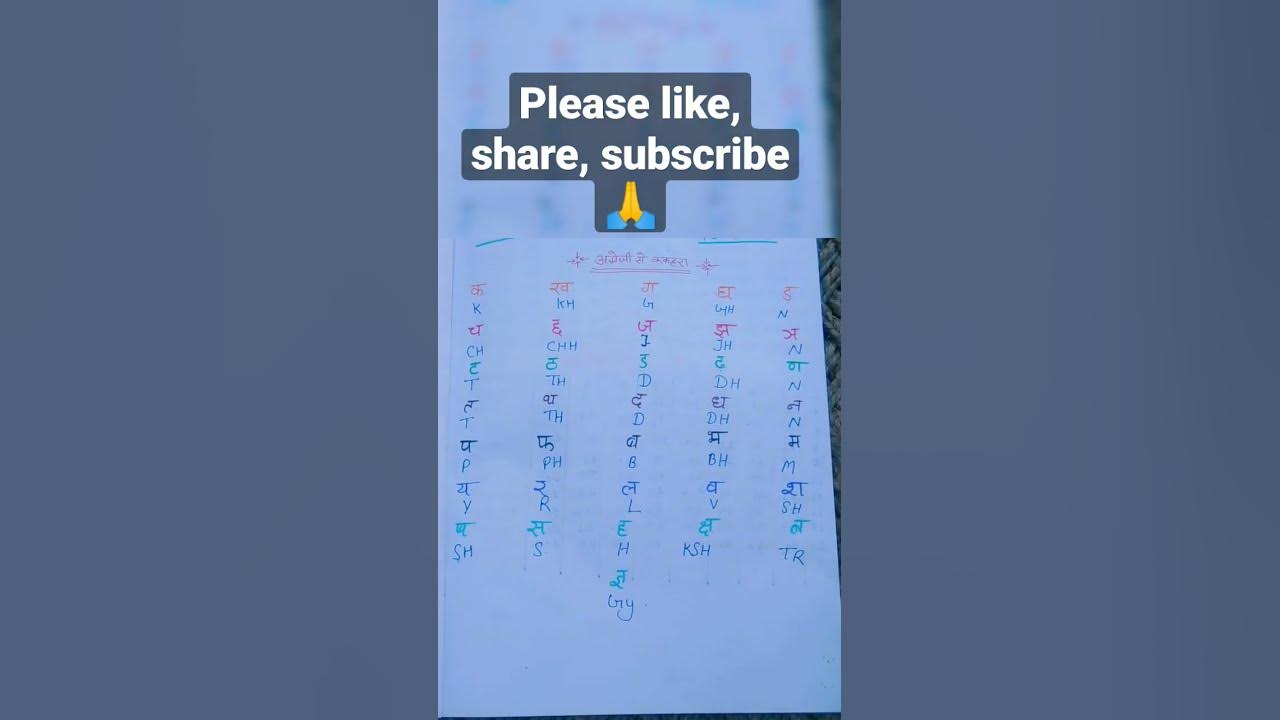 Please like,
share, subscribe
🙏
अंग्रेजी से ककहरा
क ख ग घ ङ
K KH G GH N
च छ ज झ ञ
CH CHH J JH N
ट ठ ड ढ ण
T TH D DH N
त थ द ध न
T TH D DH N
प फ ब भ म
P PH B BH M
य र ल व श
Y R L V SH
ष स ह क्ष त्र
SH S H KSH TR
ज्ञ
Gy